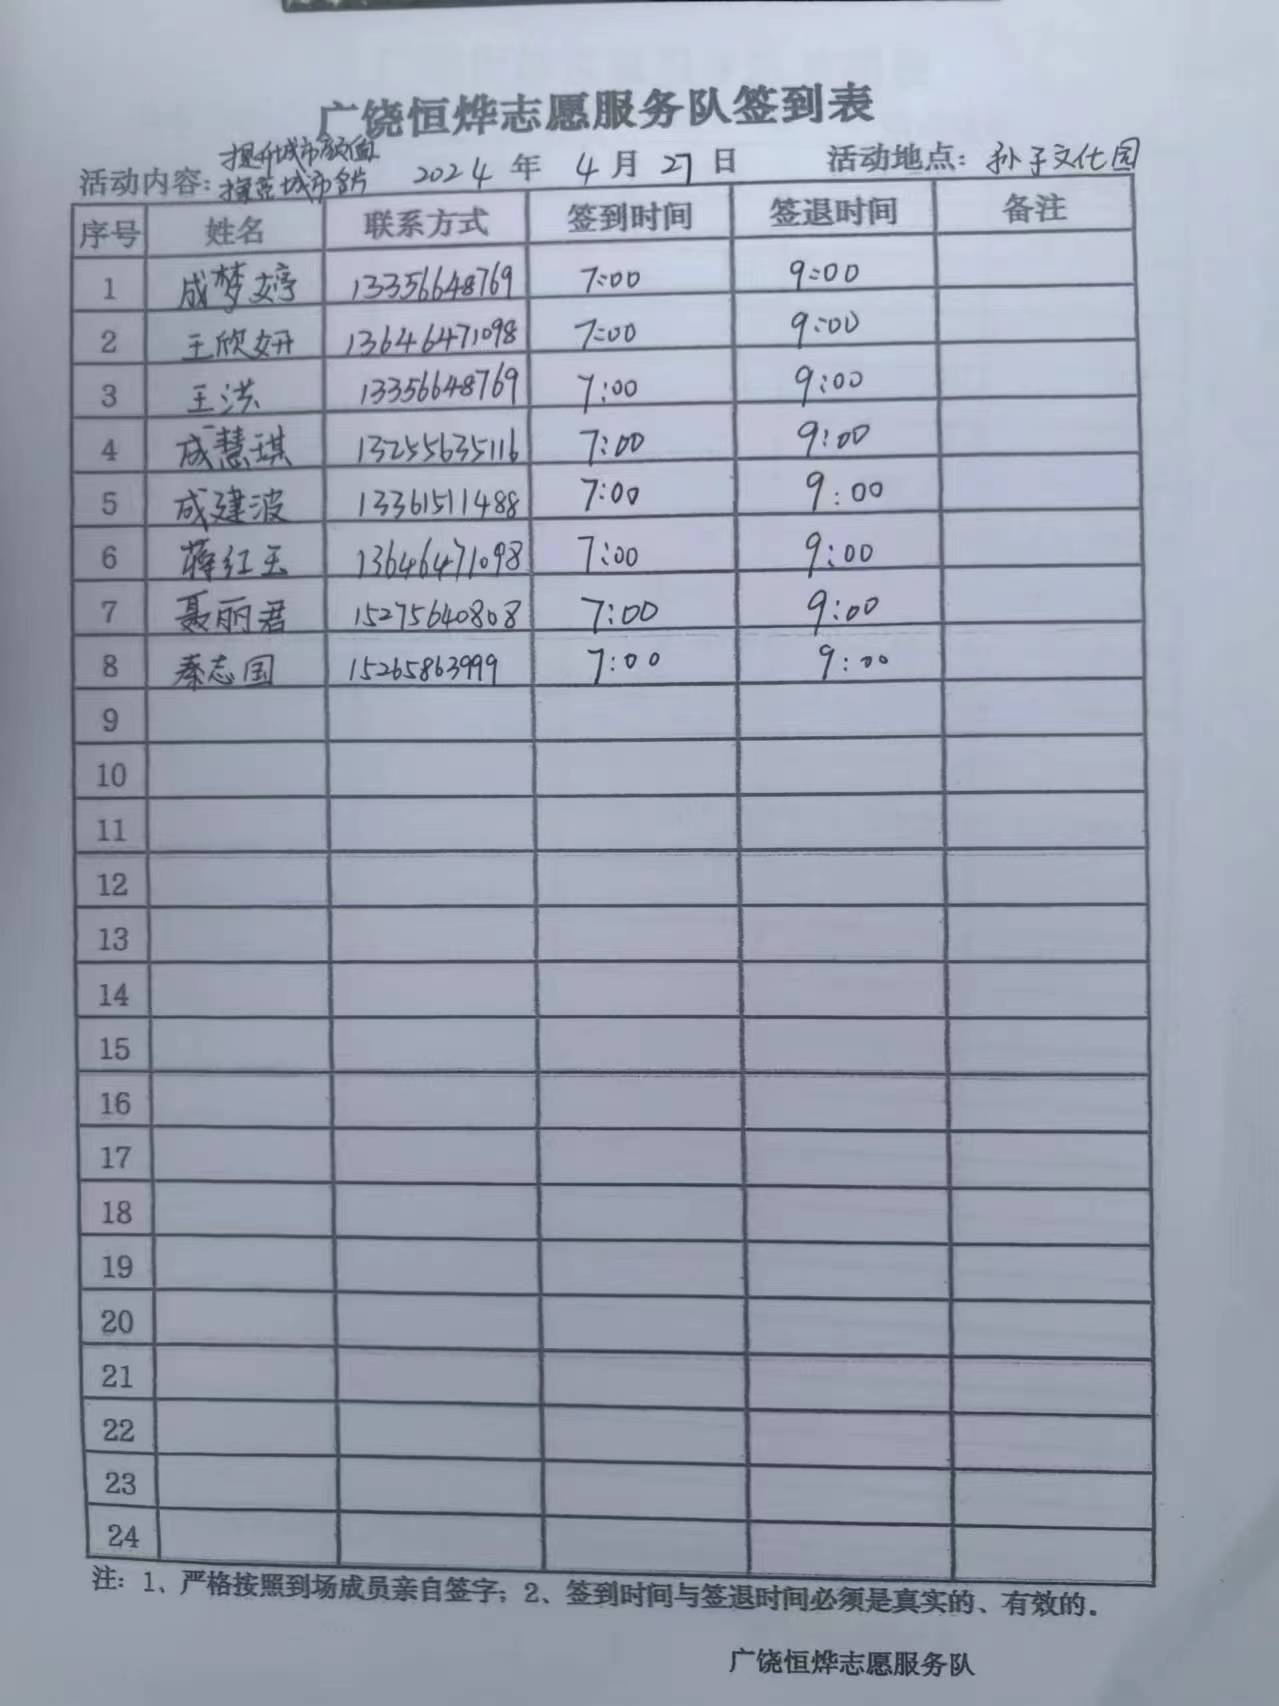 广饶恒烨志愿服务队签到表
提升城市颜值
活动内容: 2024 年 4 月 27 日 活动地点: 孙子文化园
擦亮城市名片
序号 姓名 联系方式 签到时间 签退时间 备注
1 成梦婷 13356648769 7:00 9:00
2 王欣妍 13646471098 7:00 9:00
3 王洪 13356648769 7:00 9:00
4 成慧琪 13255635116 7:00 9:00
5 成建波 13361511488 7:00 9:00
6 蒋红玉 13646471098 7:00 9:00
7 聂丽君 15275640808 7:00 9:00
8 秦志国 15265863999 7:00 9:00
9
10
11
12
13
14
15
16
17
18
19
20
21
22
23
24
注: 1、严格按照到场成员亲自签字; 2、签到时间与签退时间必须是真实的、有效的。
广饶恒烨志愿服务队